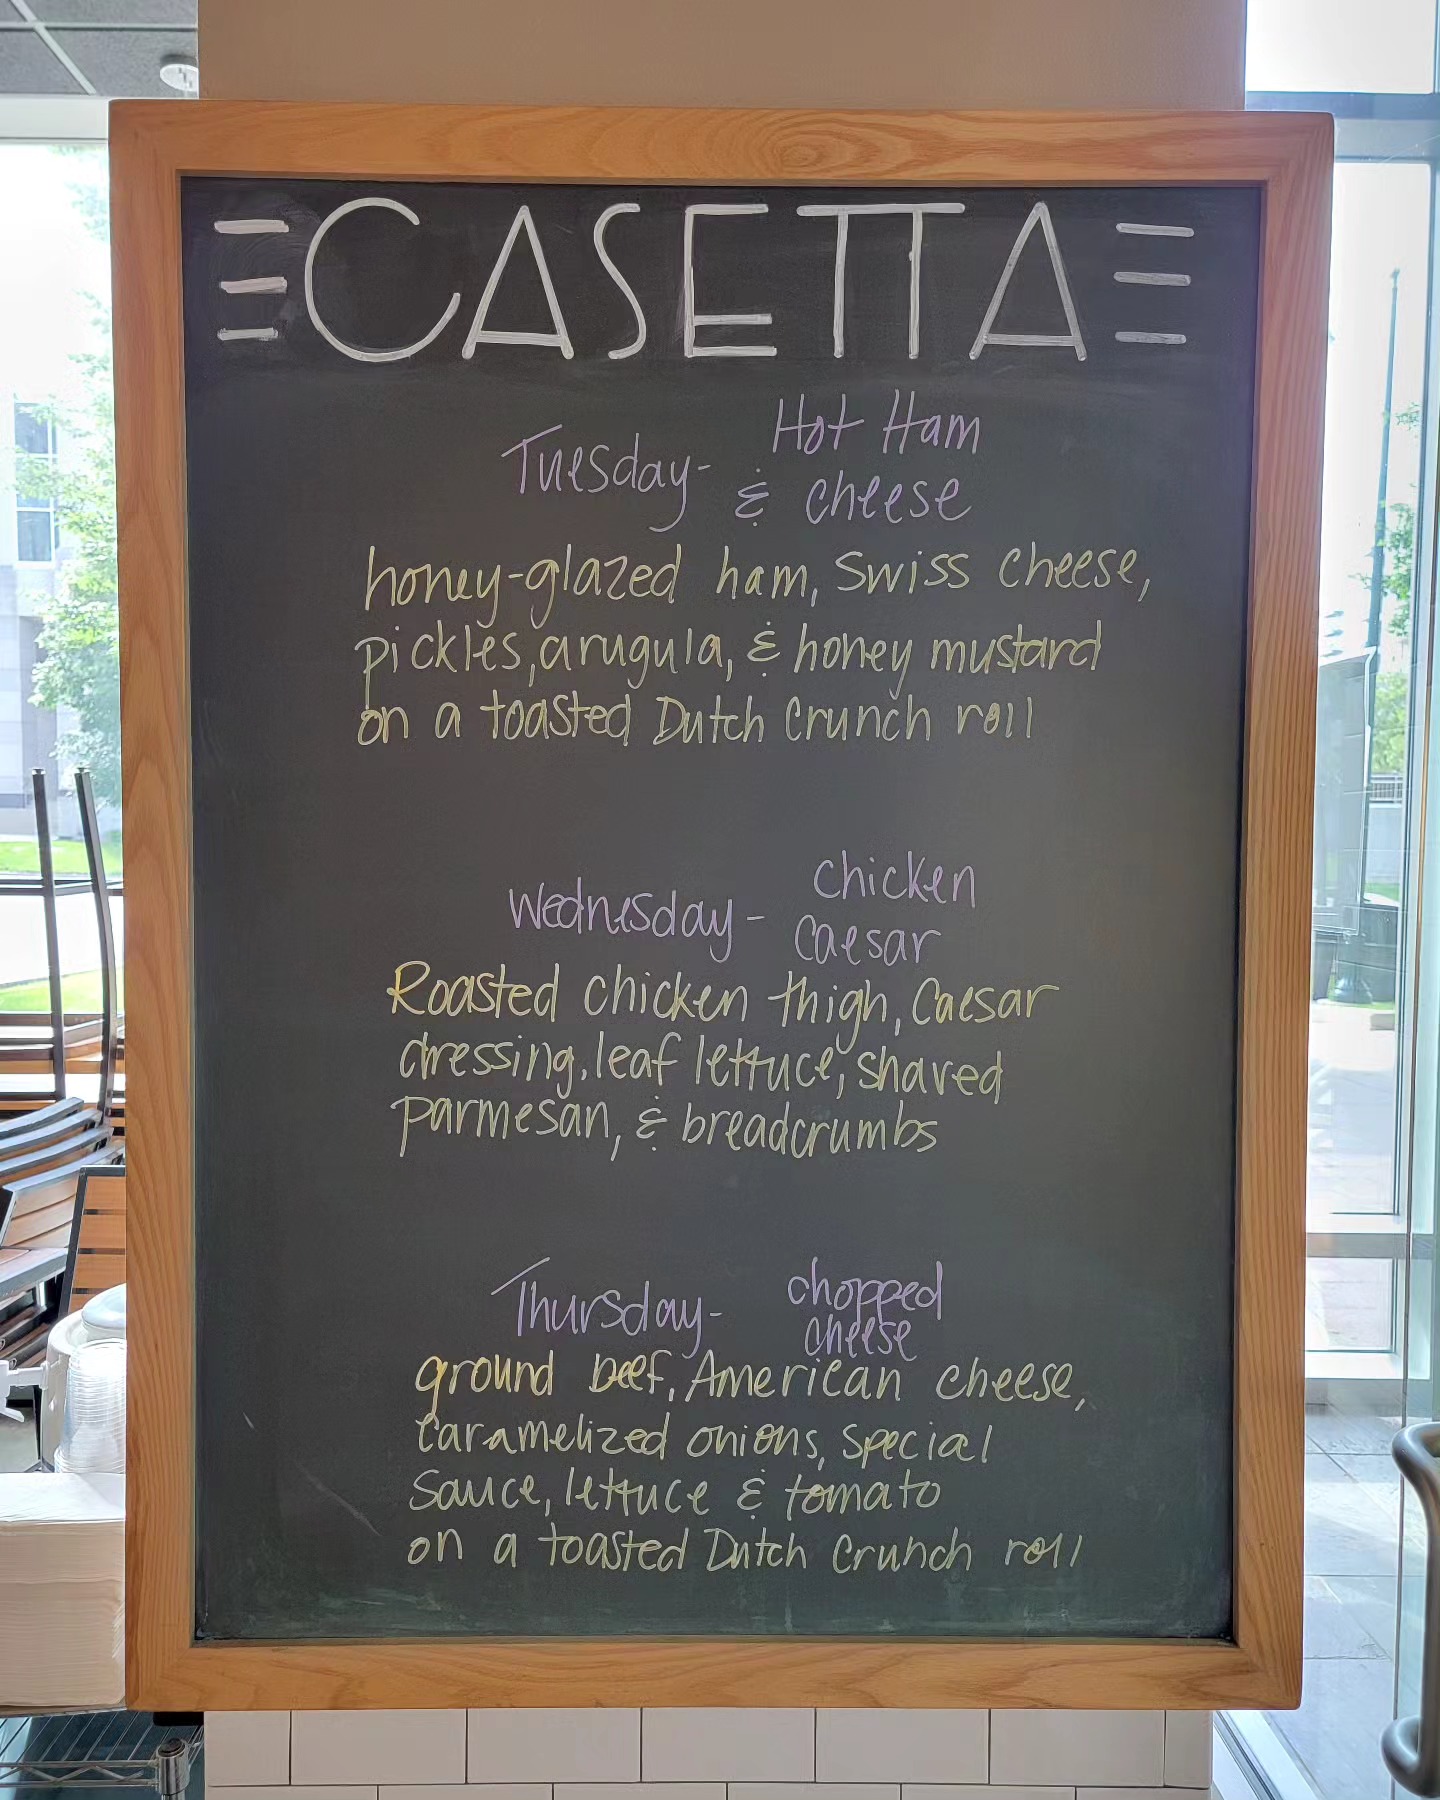 CASETTA
Tuesday- Hot Ham
& cheese
honey-glazed ham, Swiss cheese,
pickles, arugula, & honey mustard
on a toasted Dutch Crunch roll
Wednesday- chicken
caesar
Roasted chicken thigh, Caesar
dressing, leaf lettuce, shaved
parmesan, & breadcrumbs
Thursday- chopped
cheese
ground beef, American cheese,
caramelized onions, special
sauce, lettuce & tomato
on a toasted Dutch Crunch roll